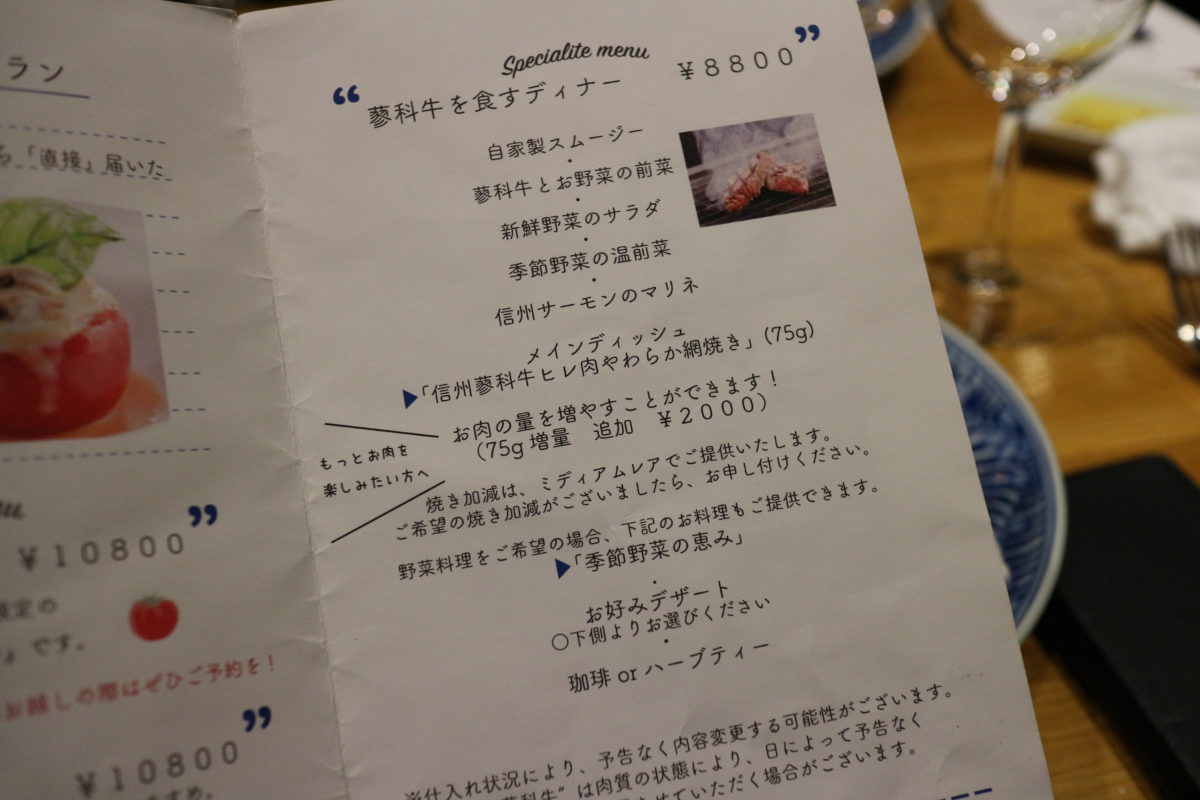 ラン
「直接」届いた
¥10800
限定の
です。
お越しの際はぜひご予約を！
¥10800
Specialite menu
“蓼科牛を食すディナー ¥8800”
自家製スムージー
・
蓼科牛とお野菜の前菜
・
新鮮野菜のサラダ
・
季節野菜の温前菜
・
信州サーモンのマリネ
メインディッシュ
▶「信州蓼科牛ヒレ肉やわらか網焼き」(75g)
お肉の量を増やすことができます！
(75g増量 追加 ¥2000)
もっとお肉を
楽しみたい方へ
焼き加減は、ミディアムレアでご提供いたします。
ご希望の焼き加減がございましたら、お申し付けください。
野菜料理をご希望の場合、下記のお料理もご提供できます。
▶「季節野菜の恵み」
・
お好みデザート
○下側よりお選びください
・
珈琲 or ハーブティー
※仕入れ状況により、予告なく内容変更する可能性がございます。
蓼科牛”は肉質の状態により、日によって予告なく
させていただく場合がございます。